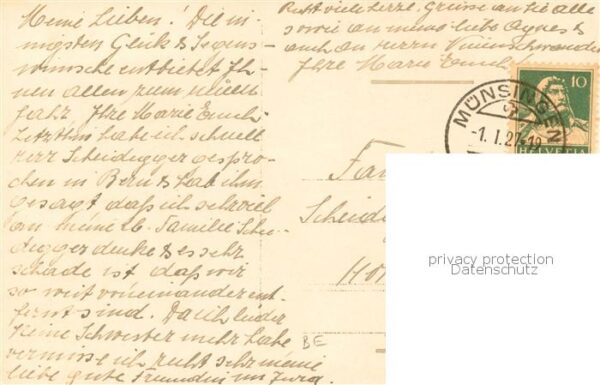 Meine Lieben! Die in-
nigsten Glück & Segens-
wünsche entbietet Ih-
nen allen zum neuen
Jahr Ihre Marie
Letzthin habe ich schnell
Herr Scheidegger gespro-
chen in Bern & hab ihm
gesagt daß ich sehr viel
an meine lb. Familie Schei-
degger denke & es sehr
schade ist daß wir
so weit voneinander ent-
fernt sind. Da ich leider
keine Schwester mehr habe
vermisse ich recht sehr meine
liebe gute Freundin im Jura.
Recht viele herzl. Grüsse an Sie alle
sowie an meine liebe Agnes &
auch an Herrn
Ihre Marie
MÜNSINGEN
-1.I.27-19
10
HELVETIA
Fam
Scheide
BE
privacy protection
Datenschutz